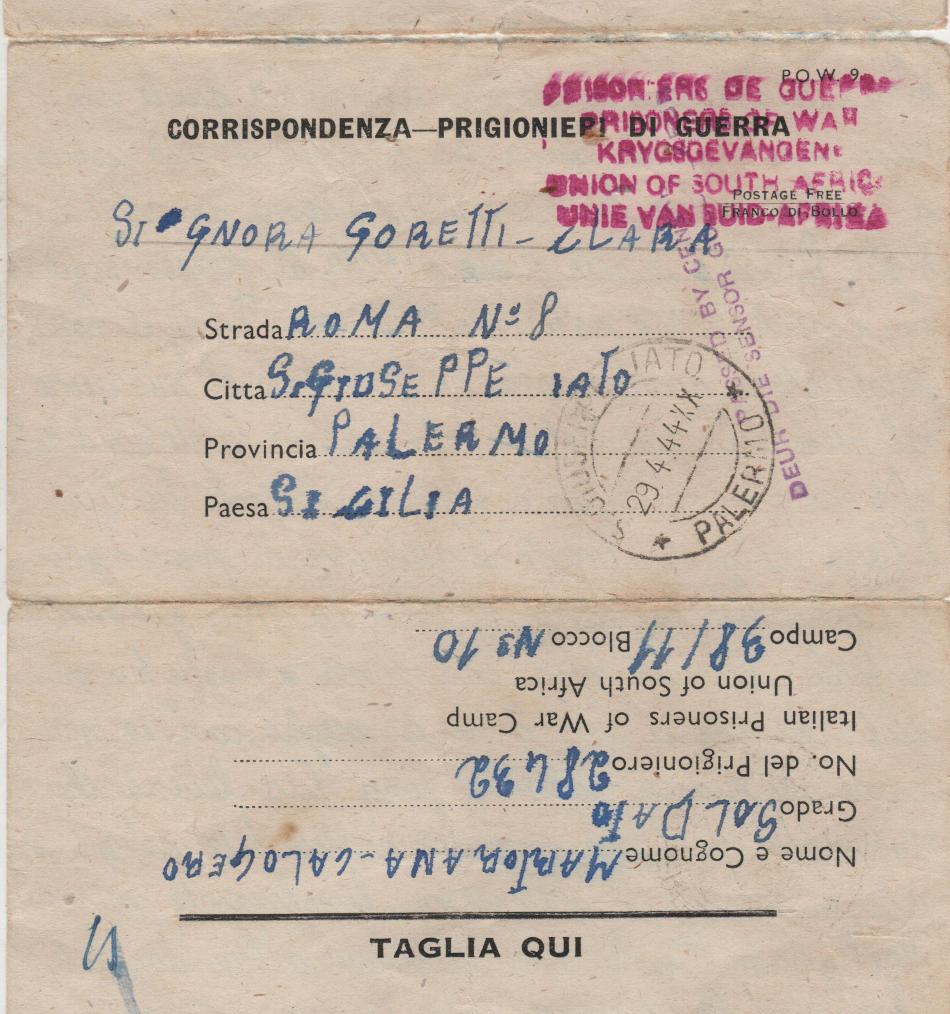 P.O.W. 9.
PRISONIERS DE GUERRE
PRISONERS OF WAR
CORRISPONDENZA—PRIGIONIERI DI GUERRA
KRYGSGEVANGENE
UNION OF SOUTH AFRIC
POSTAGE FREE
FRANCO DI BOLLO
UNIE VAN SUID-AFRIKA
SIGNORA GORETTI - CLARA
PASSED BY CEN
DEUR DIE SENSOR
Strada ROMA Nº 8
Citta S. GIUSEPPE IATO
Provincia PALERMO
Paesa SICILIA
IATO
29.4.44 XX
PALERMO
Nome e Cognome MARTORANA - CALOGERO
Grado SOLDATO
No. del Prigioniero 28432
Italian Prisoners of War Camp
Union of South Africa
Campo 98/11 Blocco Nº 10
TAGLIA QUI